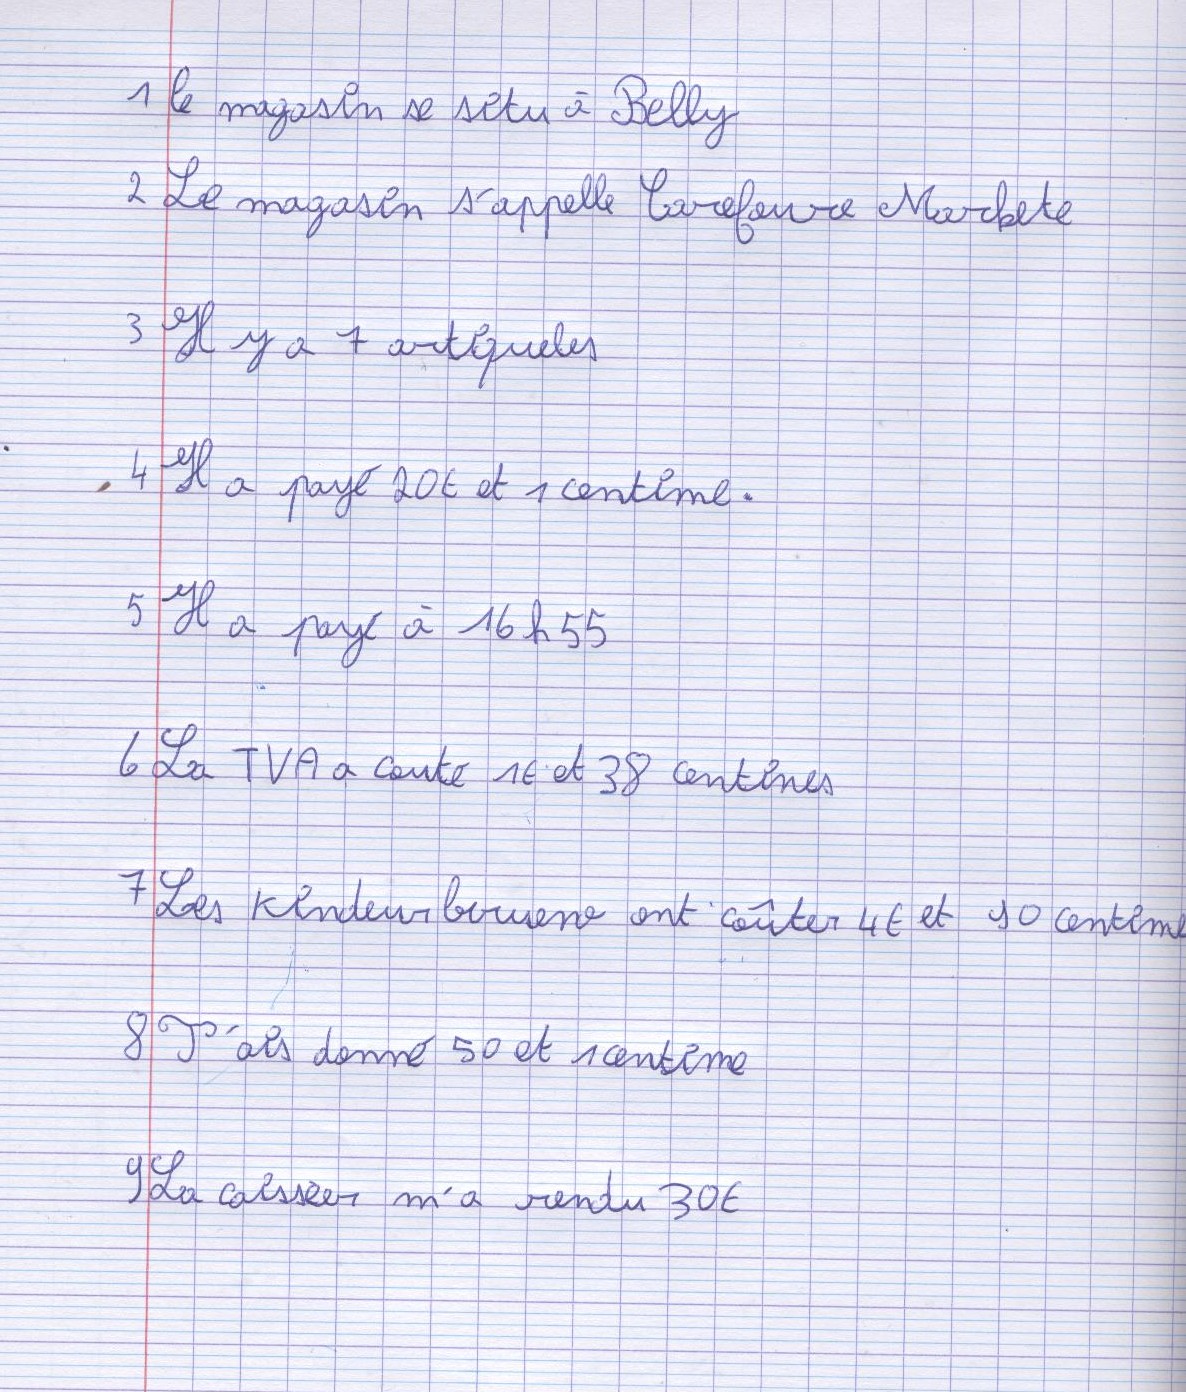 1 le magasin se situ à Belly
2 Le magasin s'appelle Carefoure Markete
3 Il y a 7 artiqueles
4 Il a payé 20€ et 1 centime.
5 Il a payé à 16h55
6 La TVA a couté 1€ et 38 centimes
7 Les Kindeur bouueno ont coûter 4€ et 90 centime
8 J'ais donné 50 et 1 centime
9 La caissier m'a rendu 30€